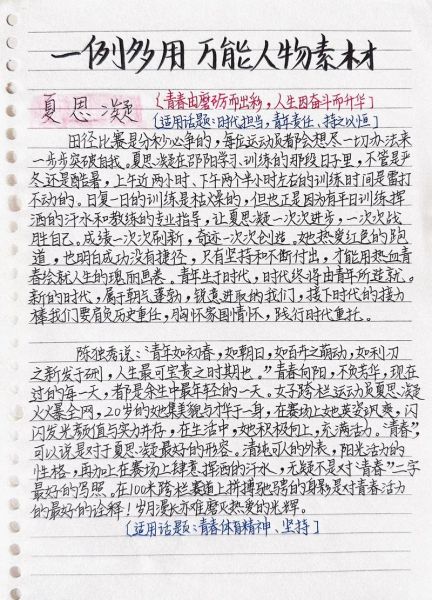 一例多用 万能人物素材
夏思凝
{青春由磨砺而出彩，人生因奋斗而升华
[适用话题：时代担当，青年责任、持之以恒]
田径比赛是分秒必争的，每位运动员都会想尽一切办法来
一步步突破自我。夏思凝在邵阳学习、训练的那段日子里，不管是严
冬还是酷暑，上午近两小时、下午两个半小时左右的训练时间是雷打
不动的。日复一日的训练是枯燥的，但也正是因为有平日训练挥
洒的汗水和教练的专业指导，让夏思凝一次次进步，一次次战
胜自己。成绩一次次刷新，奇迹一次次创造。她热爱红色的跑
道，也明白成功没有捷径，只有坚持和不断付出，才能用热血青
春绘就人生的瑰丽画卷。青年生于时代，时代终将由青年所造就。
新的时代，属于朝气蓬勃，锐意进取的我们，接下时代的接力
棒我们要肩负历史重任，胸怀家国情怀，践行时代重托。
陈独秀说：“青年如初春，如朝日，如百卉之萌动，如利刃
之新发于硎，人生最可宝贵之时期也。”青春向阳，不负芳华，现在
过的每一天，都是余生中最年轻的一天。女子跨栏运动员夏思凝
火爆全网，20岁的她集美貌与才华于一身，在赛场上她英姿飒爽，闪
闪发光颜值与实力并存，在生活中，她积极向上，充满活力。“青春”
可以说是对于夏思凝最好的形容。清纯可人的外表，阳光活力的
性格，再加上在赛场上肆意挥洒的汗水，无疑不是对“青春”二字
最好的写照。在100米跨栏赛道上拼搏驰骋的身影是对青春活力
的最好的诠释！岁月漫长亦难磨灭热爱的光辉。
[适用话题：青春体育精神、坚持]